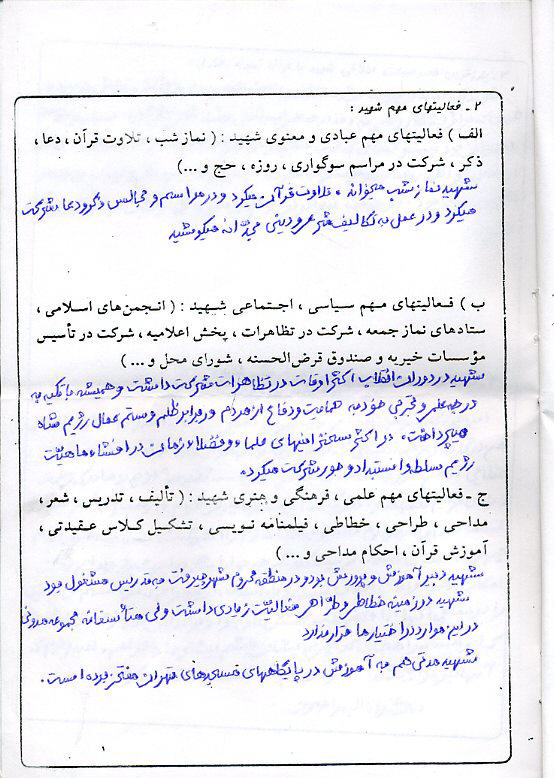 ۲ ـ فعالیتهای مهم شهید :
الف ) فعالیتهای مهم عبادی و معنوی شهید : ( نماز شب ، تلاوت قرآن ، دعا ،
ذکر ، شرکت در مراسم سوگواری ، روزه ، حج و ...)
شهید نماز شب میخواند ، تلاوت قرآن میکرد و در مراسم و مجالس ذکر و دعا شرکت
میکرد و در عمل به تکالیف شرعی و دینی میکوشید
ب ) فعالیتهای مهم سیاسی ، اجتماعی شهید : ( انجمن‌های اسلامی ،
ستادهای نماز جمعه ، شرکت در تظاهرات ، پخش اعلامیه ، شرکت در تأسیس
مؤسسات خیریه و صندوق قرض‌الحسنه ، شورای محل و ... )
شهید در دوران انقلاب اکثر اوقات در تظاهرات شرکت داشت و همیشه با تکیه به
درجه علمی و خود به حمایت و دفاع از مردم در برابر ظلم و ستم عمال رژیم شاه
میپرداخت ، در اکثر سخنرانیهای علماء و فضلاء زمان در افشاء ماهیت
رژیم سلطه و استبداد شرکت میکرد .
ج ـ فعالیتهای مهم علمی ، فرهنگی و هنری شهید : ( تألیف ، تدریس ، شعر ،
مداحی ، طراحی ، خطاطی ، فیلمنامه نویسی ، تشکیل کلاس عقیدتی ،
آموزش قرآن ، احکام مداحی و ... )
شهید دبیر آموزش و پرورش بود و در منطقه محروم شهر جیرفت به تدریس مشغول بود
شهید در زمینه خطاطی و طراحی فعالیت زیادی داشت ولی متأسفانه مجموعه مدونی
در این موارد در اختیار ما قرار ندارد
شهید مدتی هم به آموزش در پایگاههای مسجدهای تهران مفتخر بوده است .